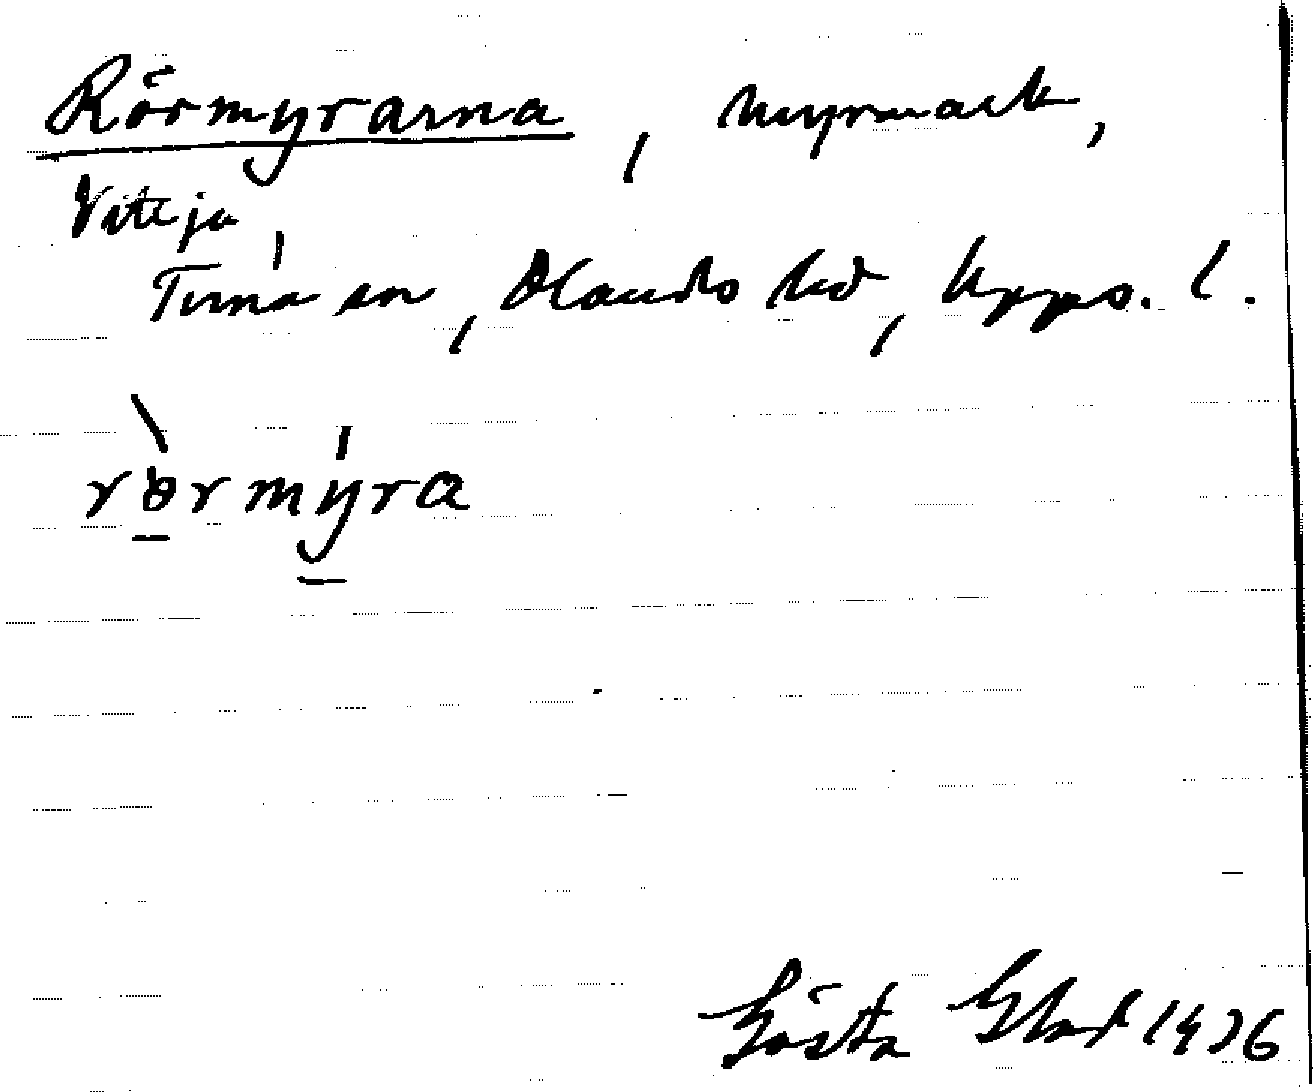 Rörmyrarna, myrmark,
Väteja,
Tuna sn, Olands hd, Upps. l.
rörmyra
Gösta